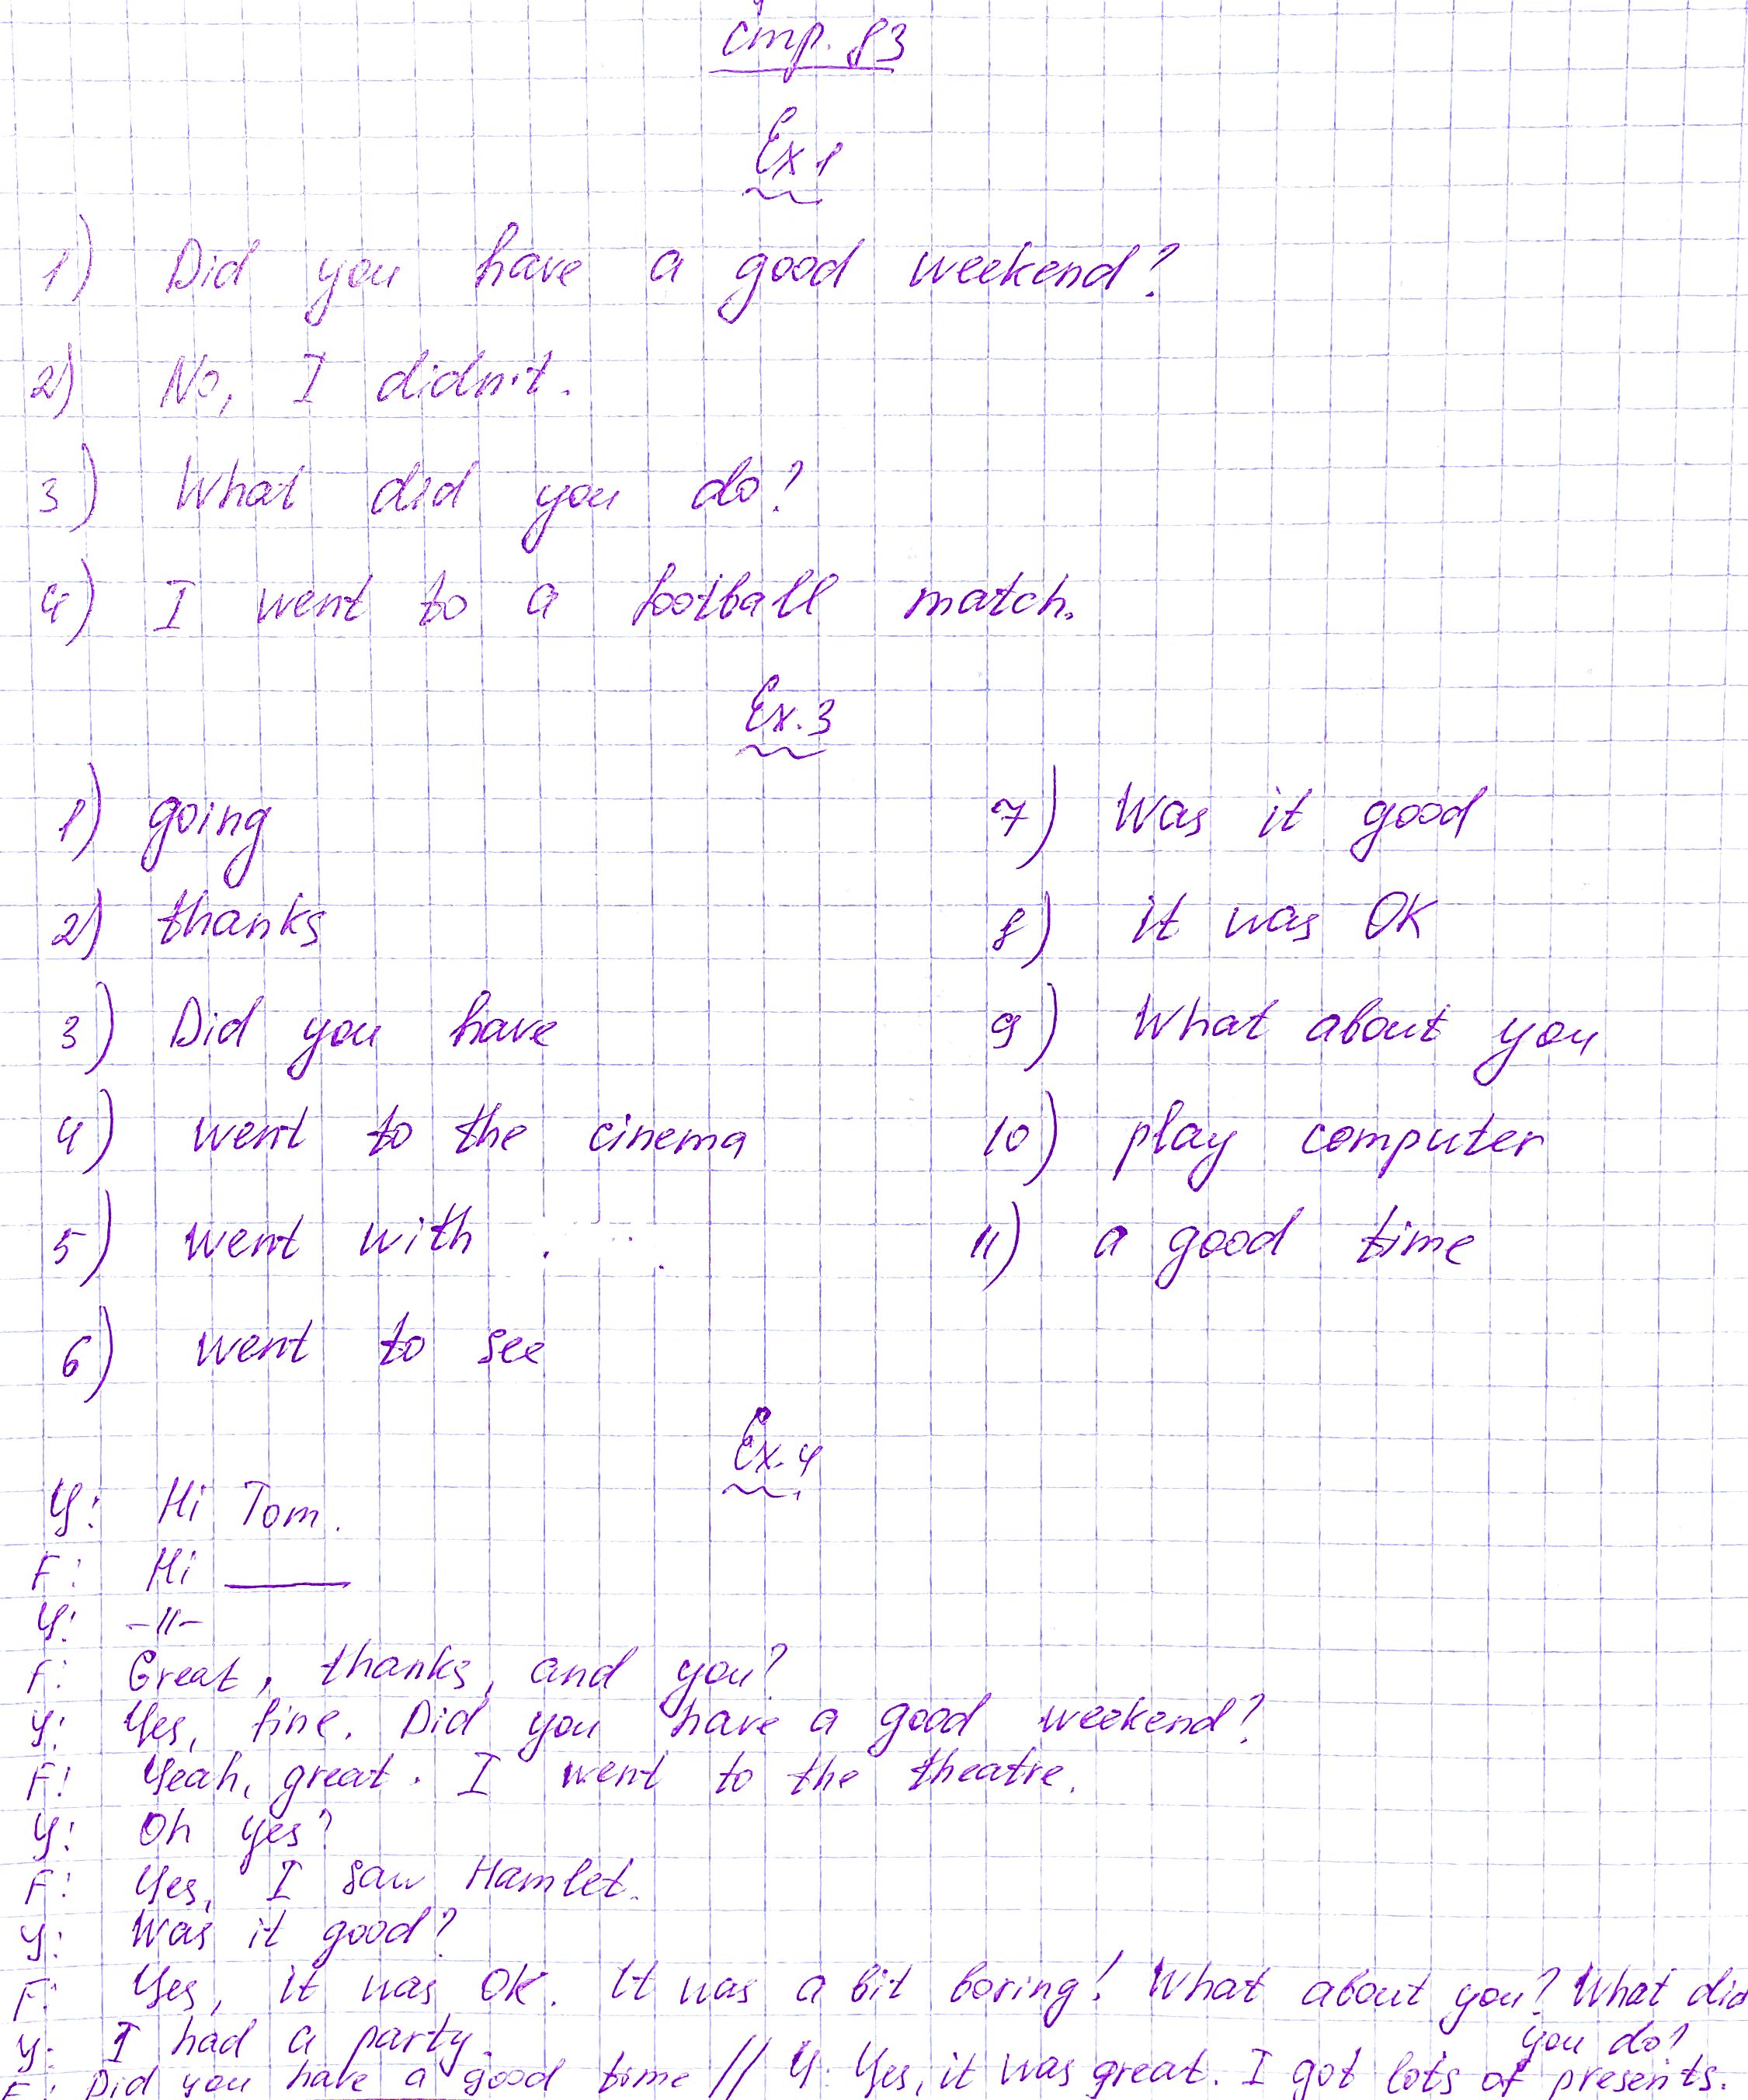 стр. 83
Ex 1
1) Did you have a good weekend?
2) No, I didn't.
3) What did you do?
4) I went to a football match.
Ex. 3
1) going
2) thanks
3) Did you have
4) went to the cinema
5) went with
6) went to see
7) Was it good
8) it was OK
9) What about you
10) play computer
11) a good time
Ex. 4
Y: Hi Tom.
F: Hi ____
Y: -//-
F: Great, thanks, and you?
Y: Yes, fine. Did you have a good weekend?
F: Yeah, great. I went to the theatre.
Y: Oh yes?
F: Yes, I saw Hamlet.
Y: Was it good?
F: Yes, it was OK. It was a bit boring! What about you? What did
you do?
Y: I had a party.
F: Did you have a good time // Y: Yes, it was great. I got lots of presents.